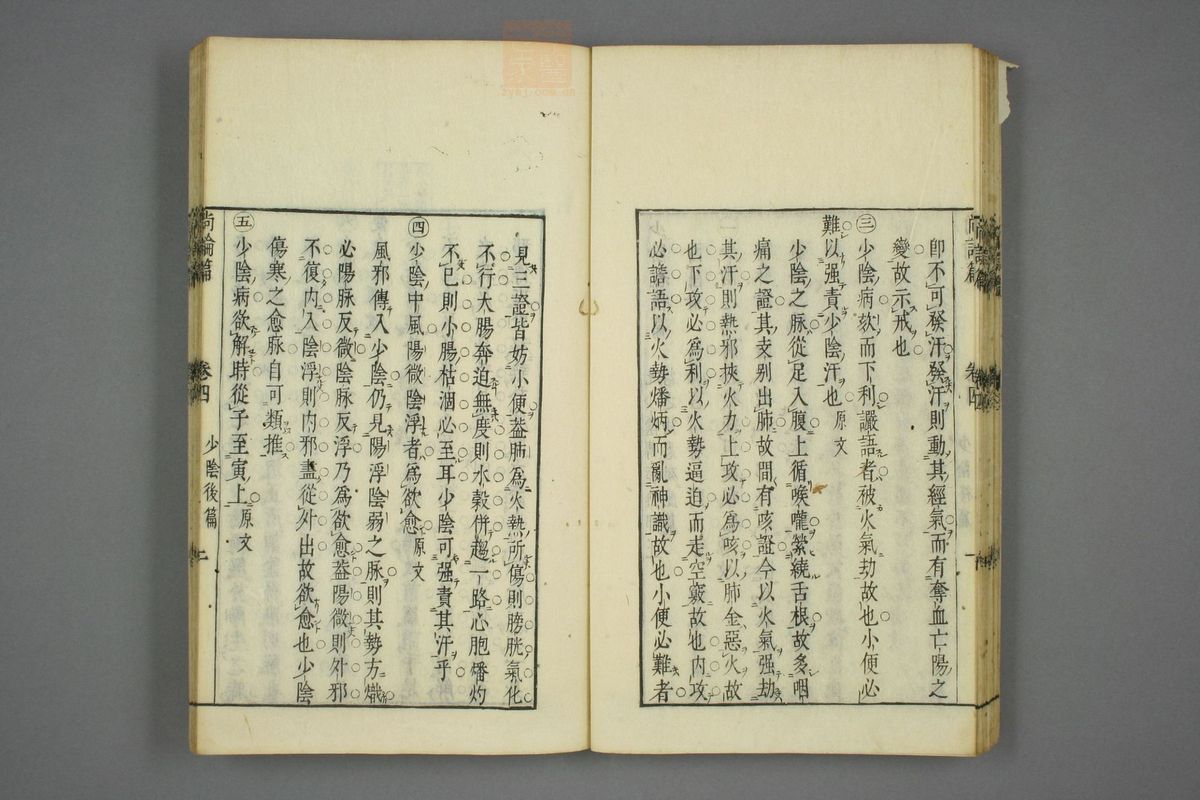 即不可發汗發汗則動其經氣而有奪血亡陽之
變故示戒也
㊂少陰病欬而下利讝語者被火氣劫故也小便必
難以强責少陰汗也 原文
少陰之脉從足入腹上循喉嚨縈繞舌根故多咽
痛之證其支别出肺故間有咳證今以火氣强劫
其汗則熱邪挾火力上攻必爲咳以肺金惡火故
也下攻必爲利以火勢逼迫而走空竅故也内攻
必讝語以火勢燔炳而亂神識故也小便必難者
見三證皆妨小便葢肺爲火熱所傷則膀胱氣化
不行大腸奔迫無度則水穀併趨一路心胞燔灼
不已則小腸枯涸必至耳少陰可强責其汗乎
㊃少陰中風陽微陰浮者爲欲愈 原文
風邪傳入少陰仍見陽浮陰弱之脉則其勢方熾
必陽脉反微陰脉反浮乃爲欲愈葢陽微則外邪
不復内入陰浮則内邪盡從外出故欲愈也少陰
傷寒之愈脉自可類推
㊄少陰病欲解時從子至寅上 原文
尚論篇 卷四 少陰後篇
zysj.com.cn